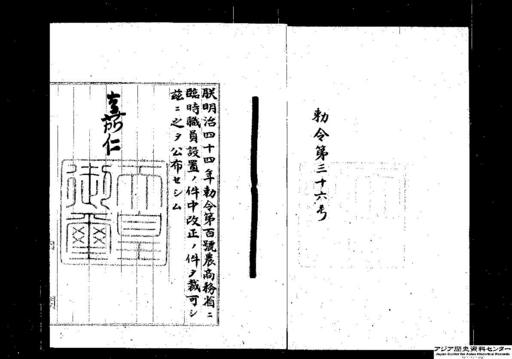 勅令第三十六号
朕明治四十四年勅令第百號農商務省ニ
臨時職員設置ノ件中改正ノ件ヲ裁可シ
茲ニ之ヲ公布セシム
嘉仁
天皇
御璽
アジア歴史資料センター
Japan Center for Asian Historical Records